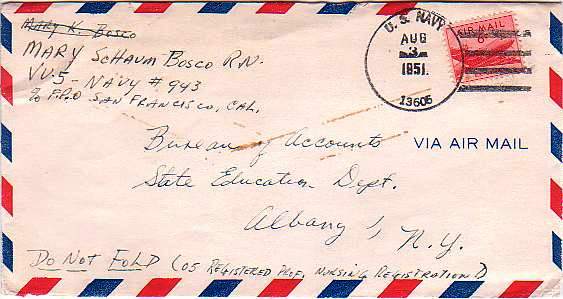 Mary K. Bosco
MARY SCHAUM BOSCO R.N.
VU-5 - NAVY # 943
℅ F.P.O SAN FRANCISCO, CAL.
U.S. NAVY
AUG
3
1951
13605
AIR MAIL
6¢
VIA AIR MAIL
Bureau of Accounts
State Education Dept.
Albany 1, N.Y.
DO NOT FOLD (05 REGISTERED PROF. NURSING REGISTRATION)